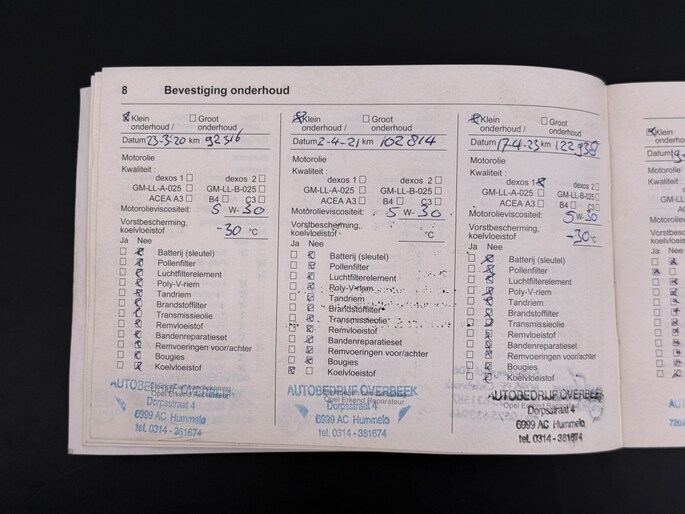 8 Bevestiging onderhoud
Klein onderhoud / Groot onderhoud
Datum 23-3-20 km 92316
Motorolie
Kwaliteit :
dexos 1 dexos 2
GM-LL-A-025 GM-LL-B-025
ACEA A3 B4 C3
Motorolieviscositeit: 5 W- 30
Vorstbescherming, koelvloeistof -30 °C
Ja Nee
Batterij (sleutel)
Pollenfilter
Luchtfilterelement
Poly-V-riem
Tandriem
Brandstoffilter
Transmissieolie
Remvloeistof
Bandenreparatieset
Remvoeringen voor/achter
Bougies
Koelvloeistof
AUTOBEDRIJF OVERBEEK
Opel Erkend Reparateur
Dorpsstraat 4
6999 AC Hummelo
tel. 0314 - 381674
Klein onderhoud / Groot onderhoud
Datum 2-4-21 km 102814
Motorolie
Kwaliteit :
dexos 1 dexos 2
GM-LL-A-025 GM-LL-B-025
ACEA A3 B4 C3
Motorolieviscositeit: 5 W- 30
Vorstbescherming, koelvloeistof °C
Ja Nee
Batterij (sleutel)
Pollenfilter
Luchtfilterelement
Poly-V-riem
Tandriem
Brandstoffilter
Transmissieolie
Remvloeistof
Bandenreparatieset
Remvoeringen voor/achter
Bougies
Koelvloeistof
AUTOBEDRIJF OVERBEEK
Opel Erkend Reparateur
Dorpsstraat 4
6999 AC Hummelo
tel. 0314 - 381674
Klein onderhoud / Groot onderhoud
Datum 17-4-23 km 122938
Motorolie
Kwaliteit :
dexos 1 dexos 2
GM-LL-A-025 GM-LL-B-025
ACEA A3 B4 C3
Motorolieviscositeit: 5 W- 30
Vorstbescherming, koelvloeistof -30 °C
Ja Nee
Batterij (sleutel)
Pollenfilter
Luchtfilterelement
Poly-V-riem
Tandriem
Brandstoffilter
Transmissieolie
Remvloeistof
Bandenreparatieset
Remvoeringen voor/achter
Bougies
Koelvloeistof
AUTOBEDRIJF OVERBEEK
Opel Erkend Reparateur
Dorpsstraat 4
6999 AC Hummelo
tel. 0314 - 381674
Klein
onderhoud
Datum
Motorolie
Kwaliteit :
GM-LL
ACE
Motorolie
Vorstbesch
koelvloeisto
Ja Nee